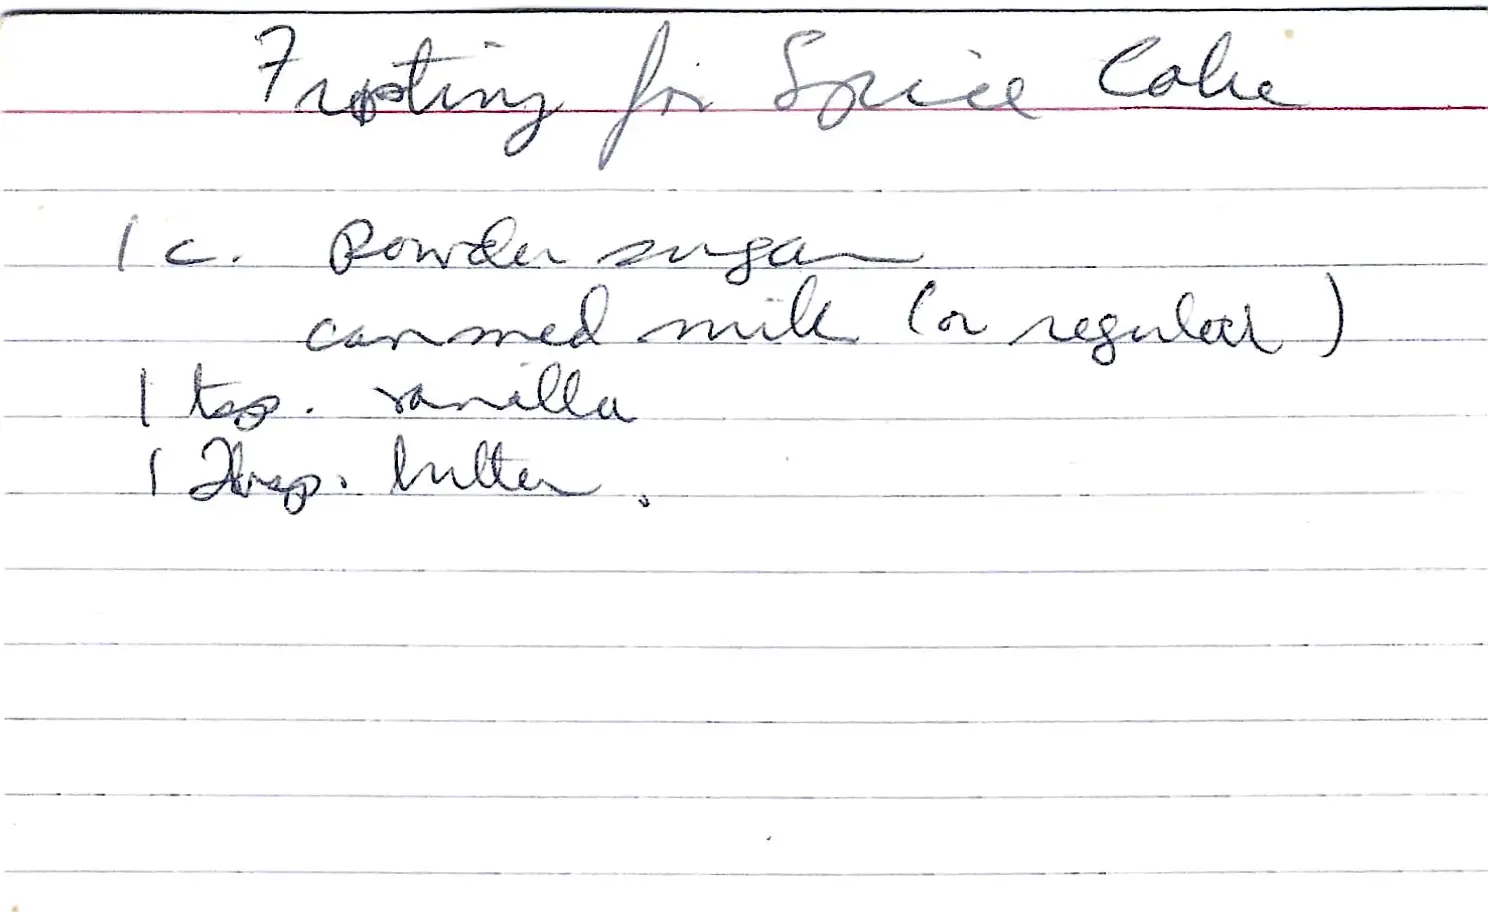 Frosting for Spice Cake
1 c. Powder sugar
canned milk (or regular)
1 tsp. vanilla
1 Tbsp. butter.